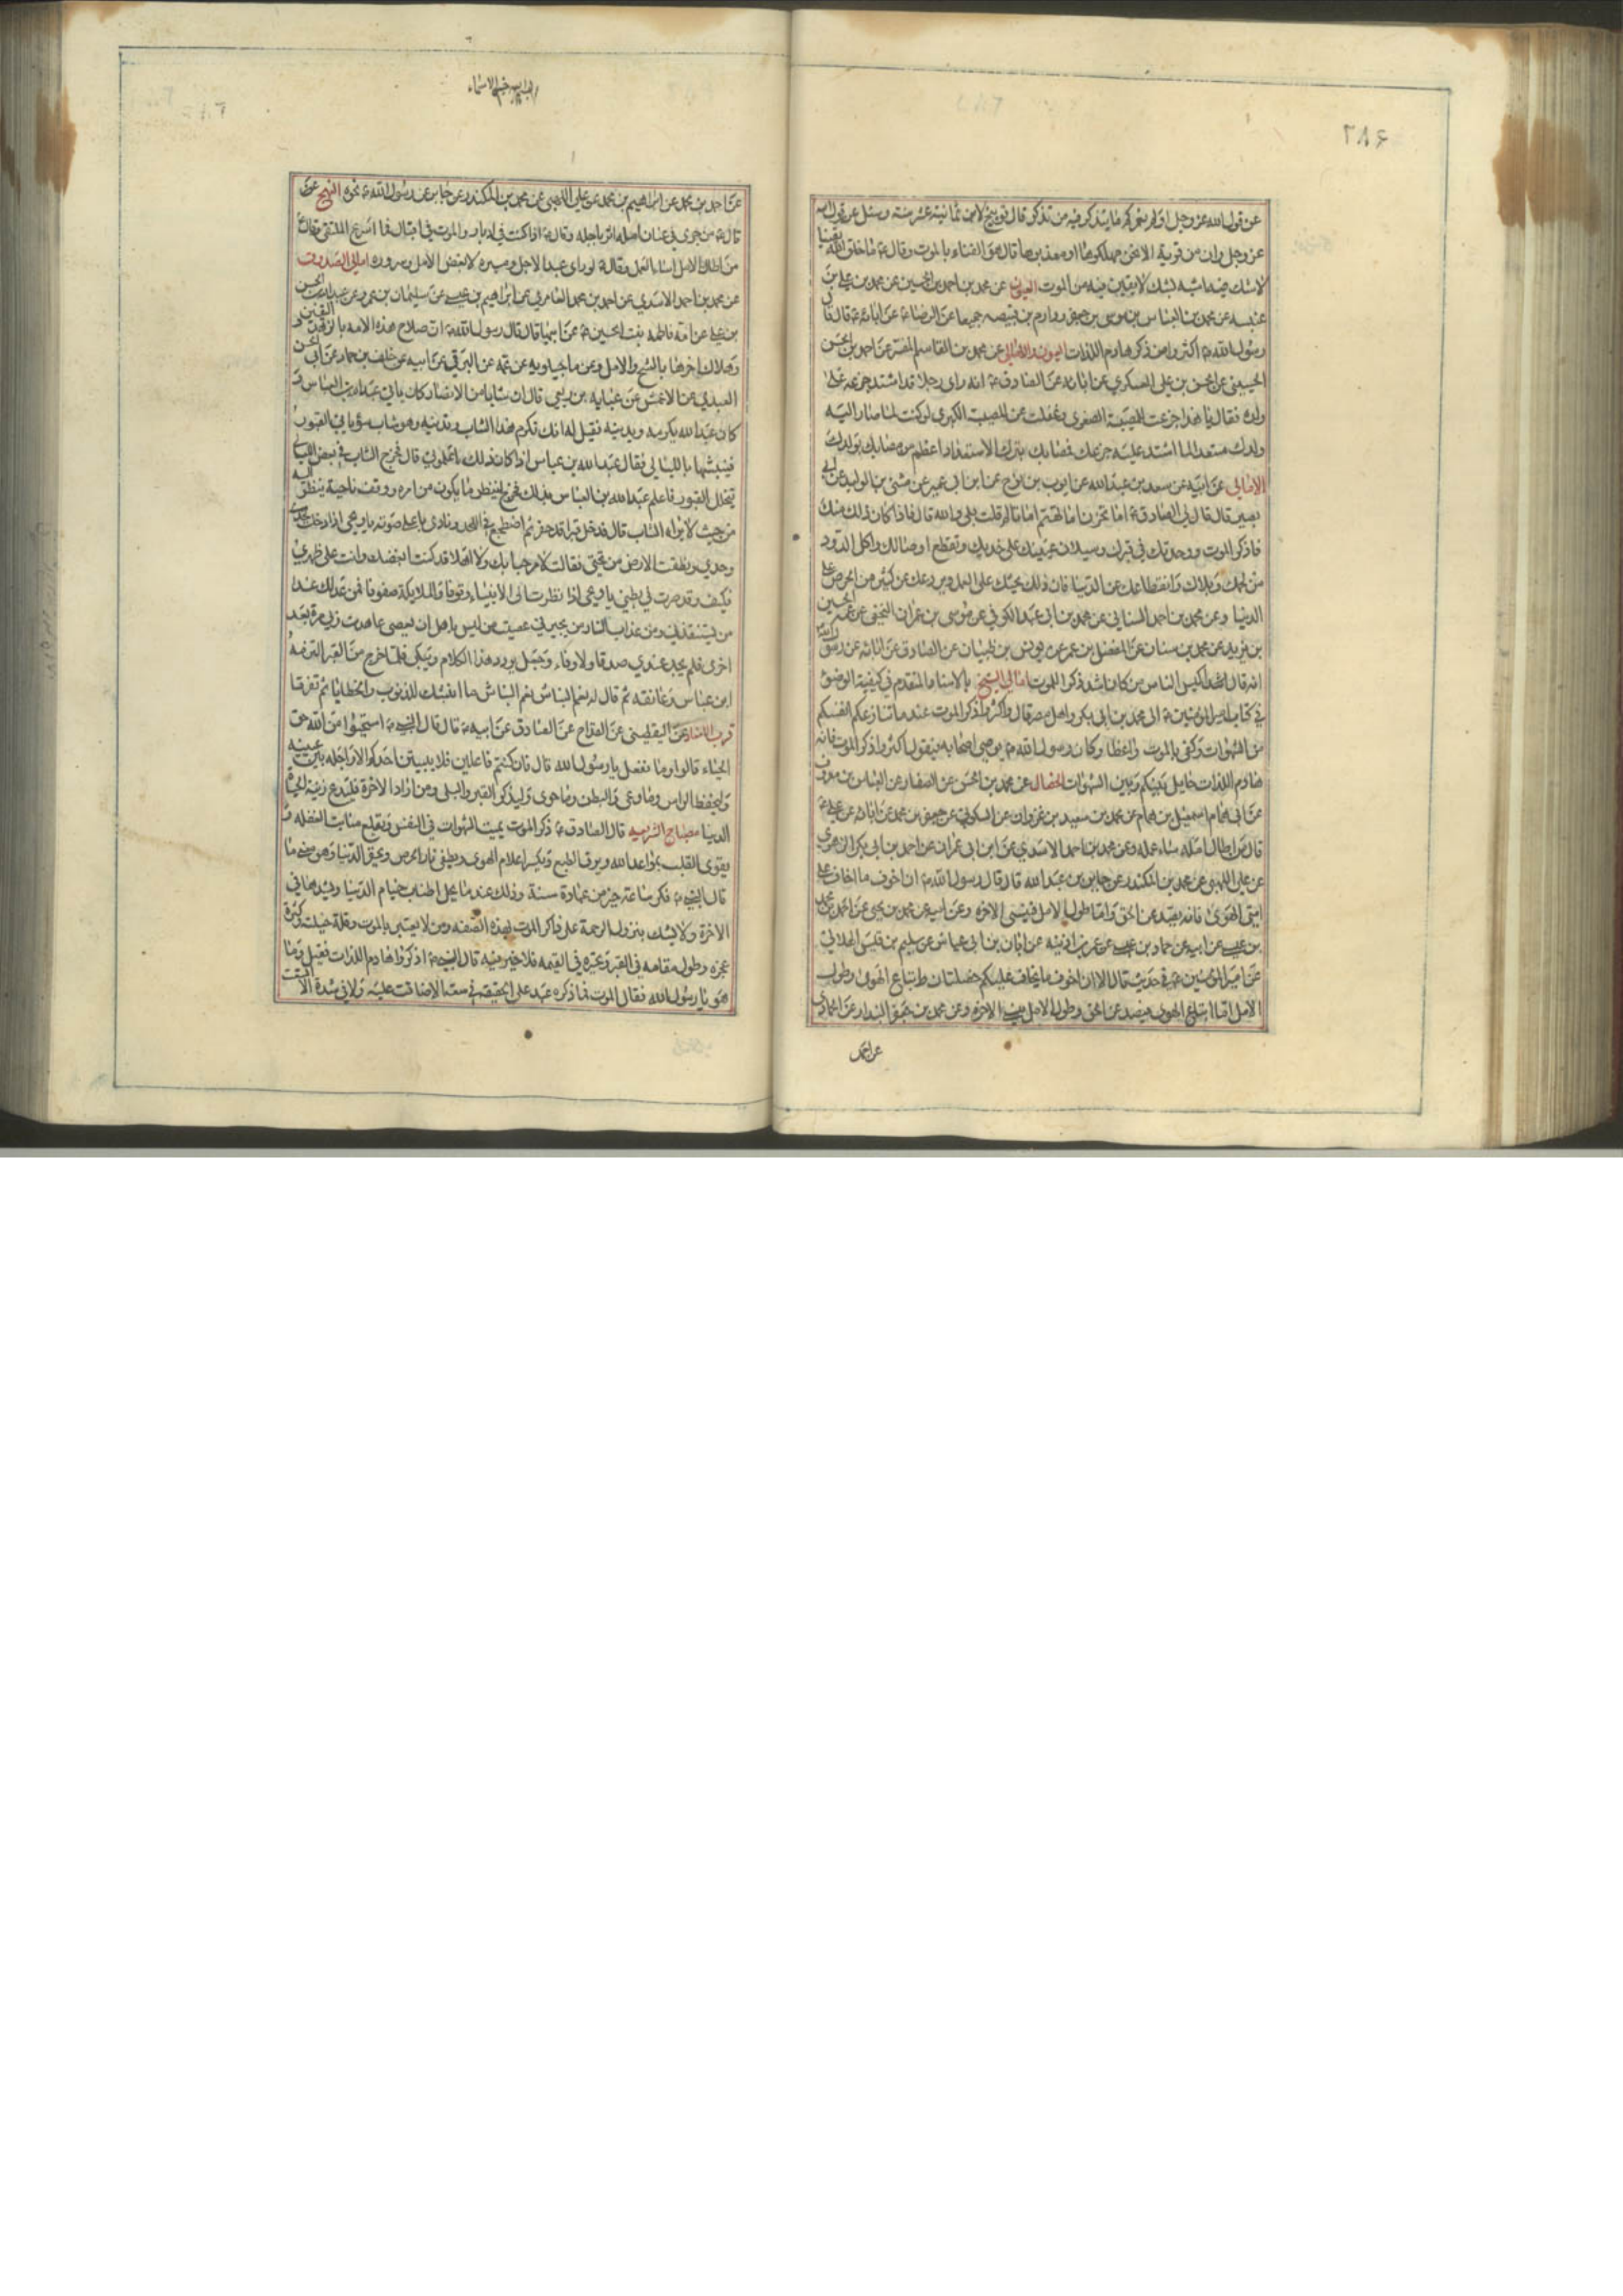 عن قول الله عز وجل اولم نعمركم ما يتذكر فيه من تذكر قال توبيخ لابن ثمانية عشر سنة وسئل عن قول الله
عز وجل وان من قرية الا نحن مهلكوها او معذبوها قال هو الفناء بالموت وقال ع ما خلق الله يقينا
لا شك فيه اشبه بشك لا يقين فيه من الموت العيون عن محمد بن احمد بن الحسين عن محمد بن علي بن
عنبسه عن محمد بن العباس بن موسى بن جعفر ودارم بن قبيصه جميعا عن الرضا ع عن ابائه ع قال قال
رسول الله ص اكثروا من ذكر هادم اللذات العيون والامالي عن محمد بن القاسم المفسر عن احمد بن الحسن
الحسيني عن الحسن بن علي العسكري عن ابائه عن الصادق ع انه راى رجلا قد اشتد جزعه على
ولده فقال يا هذا جزعت للمصيبة الصغرى وغفلت عن المصيبة الكبرى لو كنت لما صار اليه
ولدك مستعدا لما اشتد عليه جزعك فمصابك بتركك الاستعداد اعظم من مصابك بولدك
الامالي عن ابيه عن سعد بن عبد الله عن ايوب بن نوح عن ابن ابي عمير عن مثنى بن الوليد عن ابي
بصير قال قال لي الصادق ع اما تحزن اما تهتم اما تالم قلت بلى والله قال فاذا كان ذلك منك
فاذكر الموت ووحدتك في قبرك وسيلان عينيك على خديك وتقطع اوصالك واكل الدود
من لحمك وبلاك وانقطاعك عن الدنيا فان ذلك يحثك على العمل ويردعك عن كثير من الحرص على
الدنيا وعن محمد بن احمد السناني عن محمد بن ابي عبد الله الكوفي عن موسى بن عمران النخعي عن عمه الحسين
بن يزيد عن محمد بن سنان عن المفضل بن عمر عن يونس بن ظبيان عن الصادق عن ابائه عن رسول الله ص
انه قال اكيس الناس من كان اشد ذكرا للموت امالي الشيخ بالاسناد المتقدم في كيفية الوضوء
في كتاب امير المؤمنين ع الى محمد بن ابي بكر واهل مصر قال واكثروا ذكر الموت عند ما تنازعكم انفسكم
من الشهوات وكفى بالموت واعظا وكان رسول الله ص يوصي اصحابه فيقول اكثروا ذكر الموت فانه
هادم اللذات حايل بينكم وبين الشهوات الخصال عن محمد بن الحسن عن الصفار عن العباس بن معروف
عن ابي همام اسمعيل بن همام عن محمد بن سعيد بن غزوان عن السكوني عن جعفر بن محمد عن ابائه عن علي ع
قال من اطال امله ساء عمله وعن محمد بن احمد الاسدي عن ابن ابي عمران عن احمد بن ابي بكر الزهري
عن علي اللهبي عن محمد بن المكندر عن جابر بن عبد الله قال قال رسول الله ص ان اخوف ما اخاف على
امتي الهوى فانه يصد عن الحق واما طول الامل فينسي الاخره وعن ابيه عن محمد بن يحيى عن احمد بن محمد
بن عيسى عن ابيه عن حماد بن عيسى عن عمر بن اذينه عن ابان بن ابي عياش عن سليم بن قيس الهلالي
عن امير المؤمنين ع في حديث قال الا ان اخوف ما يخاف عليكم خصلتان اتباع الهوى وطول
الامل اما اتباع الهوى فيصد عن الحق وطول الامل ينسي الاخره وعن محمد بن جعفر البندار عن الحمادي
عن احمد
عن احمد بن محمد عن ابراهيم بن محمد عن علي اللهبي عن محمد بن المكندر عن جابر عن رسول الله ص نحوه النهج عن
قال ع من جرى في عنان امله عثر باجله وقال ع اذا كنت في ادبار والموت في اقبال فما اسرع الملتقى وقال ع
من اطال الامل اساء العمل وقال ع لو راى عبد الاجل ومسيره لابغض الامل وغروره امالي الصدوق
عن محمد بن احمد الاسدي عن احمد بن محمد العامري عن ابراهيم بن عيسى عن سليمان بن عمرو عن عبد الله بن الحسن
بن علي عن امه فاطمه بنت الحسين ع عن ابيها قال قال رسول الله ص ان صلاح هذه الامه بالزهد واليقين
وهلاك اخرها بالشح والامل وعن ماجيلويه عن عمه عن البرقي عن ابيه عن خلف بن حماد عن ابي الحسن
العبدي عن الاعمش عن عبايه بن ربعي قال ان شابا من الانصار كان ياتي عبد الله بن العباس و
كان عبد الله يكرمه ويدنيه فقيل له انك تكرم هذا الشاب وتدنيه وهو شاب سوء ياتي القبور
فينبشها بالليالي فقال عبد الله بن عباس اذا كان ذلك فاعلموني قال فخرج الشاب في بعض الليالي
يتخلل القبور فاعلم عبد الله بن العباس بذلك فخرج لينظر ما يكون من امره ووقف ناحية ينظر اليه
من حيث لا يراه الشاب قال فدخل قبرا قد حفر ثم اضطجع في اللحد ونادى باعلى صوته يا ويحي اذا دخلت لحدي
وحدي ونطقت الارض من تحتي فقالت لا مرحبا بك ولا اهلا قد كنت ابغضك وانت على ظهري
فكيف وقد صرت في بطني يا ويحي اذا نظرت الى الانبياء وقوفا والملايكة صفوفا فمن عدلك غدا
من يستنقذني ومن عذاب النار من يجيرني عصيت من ليس باهل ان يعصى عاهدت ربي مرة بعد
اخرى فلم يجد عندي صدقا ولا وفاء وجعل يردد هذا الكلام ويبكي فلما خرج من القبر التزمه
ابن عباس وعانقه ثم قال له نعم النباش نعم النباش ما انبشك للذنوب والخطايا ثم تفرقا
قرب الاسناد عن اليقطيني عن القداح عن الصادق عن ابيه ع قال قال النبي ص استحيوا من الله حق
الحياء قالوا وما نفعل يا رسول الله قال فان كنتم فاعلين فلا يبيتن احدكم الا واجله بين عينيه
وليحفظ الراس وما وعى والبطن وما حوى وليذكر القبر والبلى ومن اراد الاخرة فليدع زينة الحياة
الدنيا مصباح الشريعه قال الصادق ع ذكر الموت يميت الشهوات في النفس ويقلع منابت الغفله و
يقوى القلب بمواعد الله ويرق الطبع ويكسر اعلام الهوى ويطفي نار الحرص ويحقر الدنيا وهو معنى ما
قال النبي ص فكر ساعة خير من عبادة سنة وذلك عند ما يحل اطناب خيام الدنيا ويشدها في
الاخرة ولا يشك بنزول الرحمة على ذاكر الموت بهذه الصفه ومن لا يعتبر بالموت وقلة حيلته وكثرة
عجزه وطول مقامه في القبر وتحيره في القيمه فلا خير فيه قال النبي ص اذكروا هادم اللذات فقيل وما
هو يا رسول الله فقال الموت فما ذكره عبد على الحقيقه في سعة الا ضاقت عليه ولا في شدة الا اتسعت